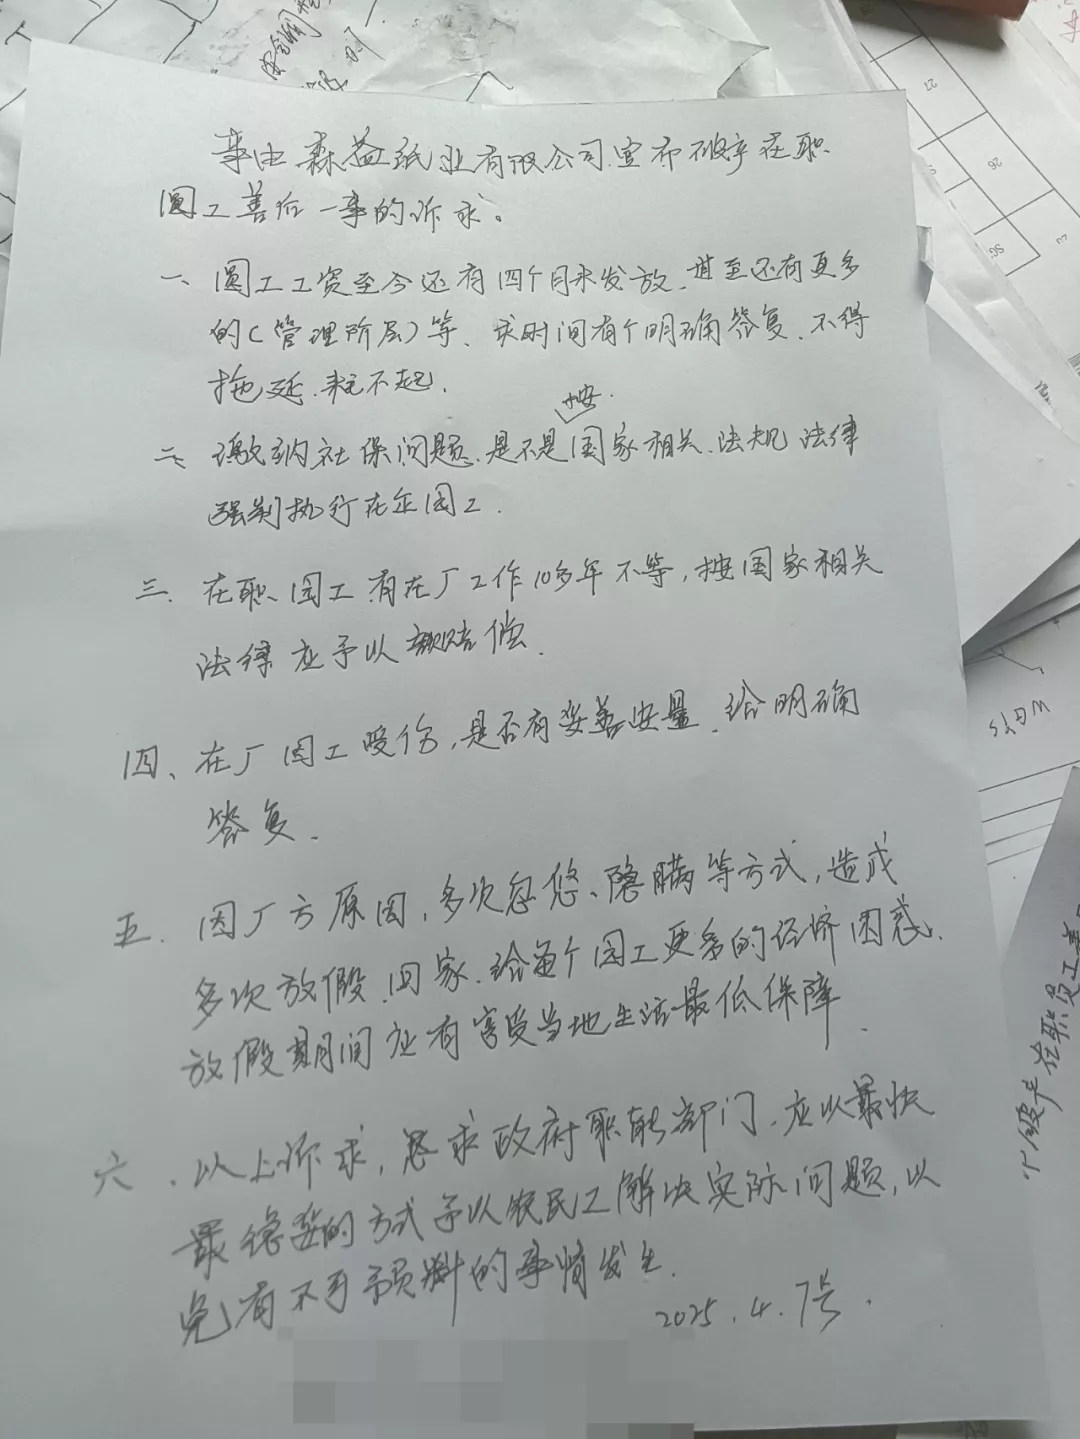 事由森益纸业有限公司.宣布破产在职
员工善后一事的诉求。
一、员工工资至今还有四个月未发放.甚至还有更多
的(管理阶层)等、求时间有个明确答复.不得
拖延.耗不起.
按.
二、缴纳社保问题.是不是国家相关.法规法律
强制执行在企员工.
三.在职员工有在厂工作10多年不等,按国家相关
法律应予以赔偿.
四、在厂员工受伤,是否有妥善安置.给明确
答复.
五.因厂方原因,多次忽悠、隐瞒等方式,造成
多次放假.回家.给每个员工更多的经济困惑.
放假期间应有享受当地生活最低保障.
六.以上诉求,恳求政府职能部门.应以最快
最稳妥的方式予以农民工解决实际问题,以
免有不可预料的事情发生.
2025.4.7号.
破产在职员工善
27
26